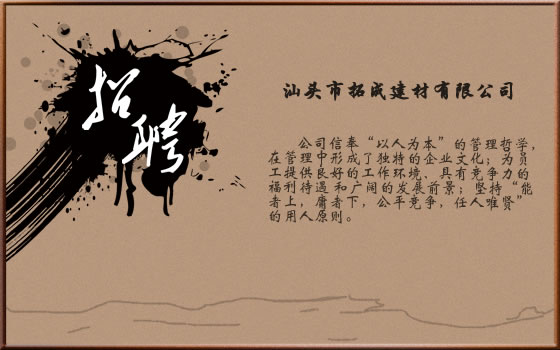 招聘
汕头市拓成建材有限公司
公司信奉“以人为本”的管理哲学，
在管理中形成了独特的企业文化；为员
工提供良好的工作环境、具有竞争力的
福利待遇和广阔的发展前景；坚持“能
者上，庸者下，公平竞争，任人唯贤”
的用人原则。